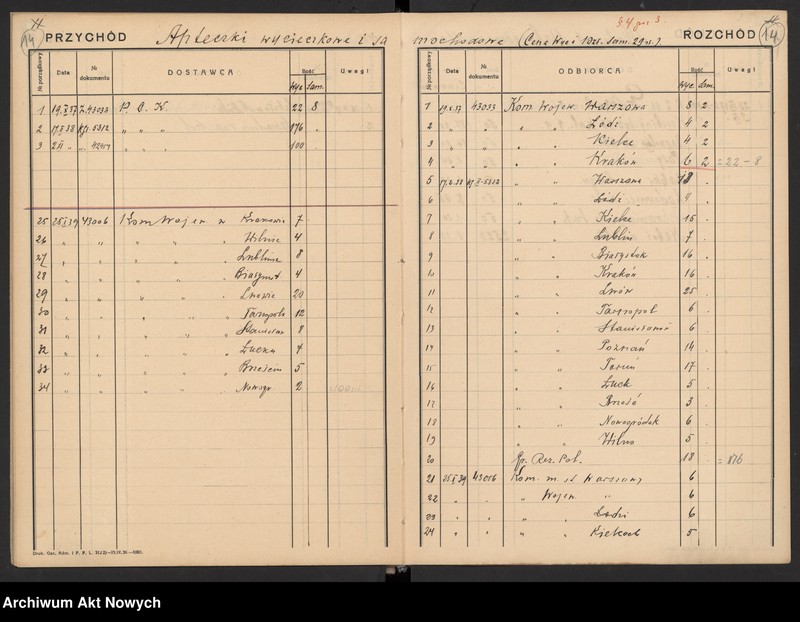 14 PRZYCHÓD Apteczki wycieczkowe i sa
№ porządkowy Data № dokumentu DOSTAWCA Ilość Uwagi
wyc. sam.
1 19.V.37 Z.43033 P. C. K. 22 8
2 17.II.38 5312 " " " 176 .
3 2II " " " " " 100 .
25 25.I.39 43006 Kom Wojew w Krakowie 7
26 " " " " " Wilnie 4
27 " " " " " Lublinie 8
28 " " " " " Białymst 4
29 " " " " " Lwowie 20
30 " " " " " Tarnopolu 12
31 " " " " " Stanisław 8
32 " " " " " Łucku 4
33 " " " " " Brześciu 5
34 " " " " " Nowogr 2
Druk. Gar. Rdm. I P. P. L.
mochodowe (Cena wyc. sam. 29 zł.). ROZCHÓD 14
№ porządkowy Data № dokumentu ODBIORCA Ilość Uwagi
wyc. sam.
1 43033 Kom Wojew. Warszawa 8 2
2 " " " " Łódź 4 2
3 " " " " Kielce 4 2
4 " " " " Kraków 6 2 = 22 – 8
5 5312 " " Warszawa 18 .
6 " " Łódź 4 .
7 " " Kielce 15 .
8 " " Lublin 7 .
9 " " Białystok 16 .
10 " " Kraków 16 .
11 " " Lwów 25 .
12 " " Tarnopol 6 .
13 " " Stanisławów 6
14 " " Poznań 14 .
15 " " Toruń 17 .
16 " " Łuck 5 .
17 " " Brześć 3 .
18 " " Nowogródek 6 .
19 " " Wilno 5 .
20 Gr. Rez. Pol. 18 . = 176
21 25.I.39 43006 Kom. m. st. Warszawy 6
22 " " " Wojew. " 6
23 " " " " Łodzi 6
24 " " " " Kielcach 5
Archiwum Akt Nowych